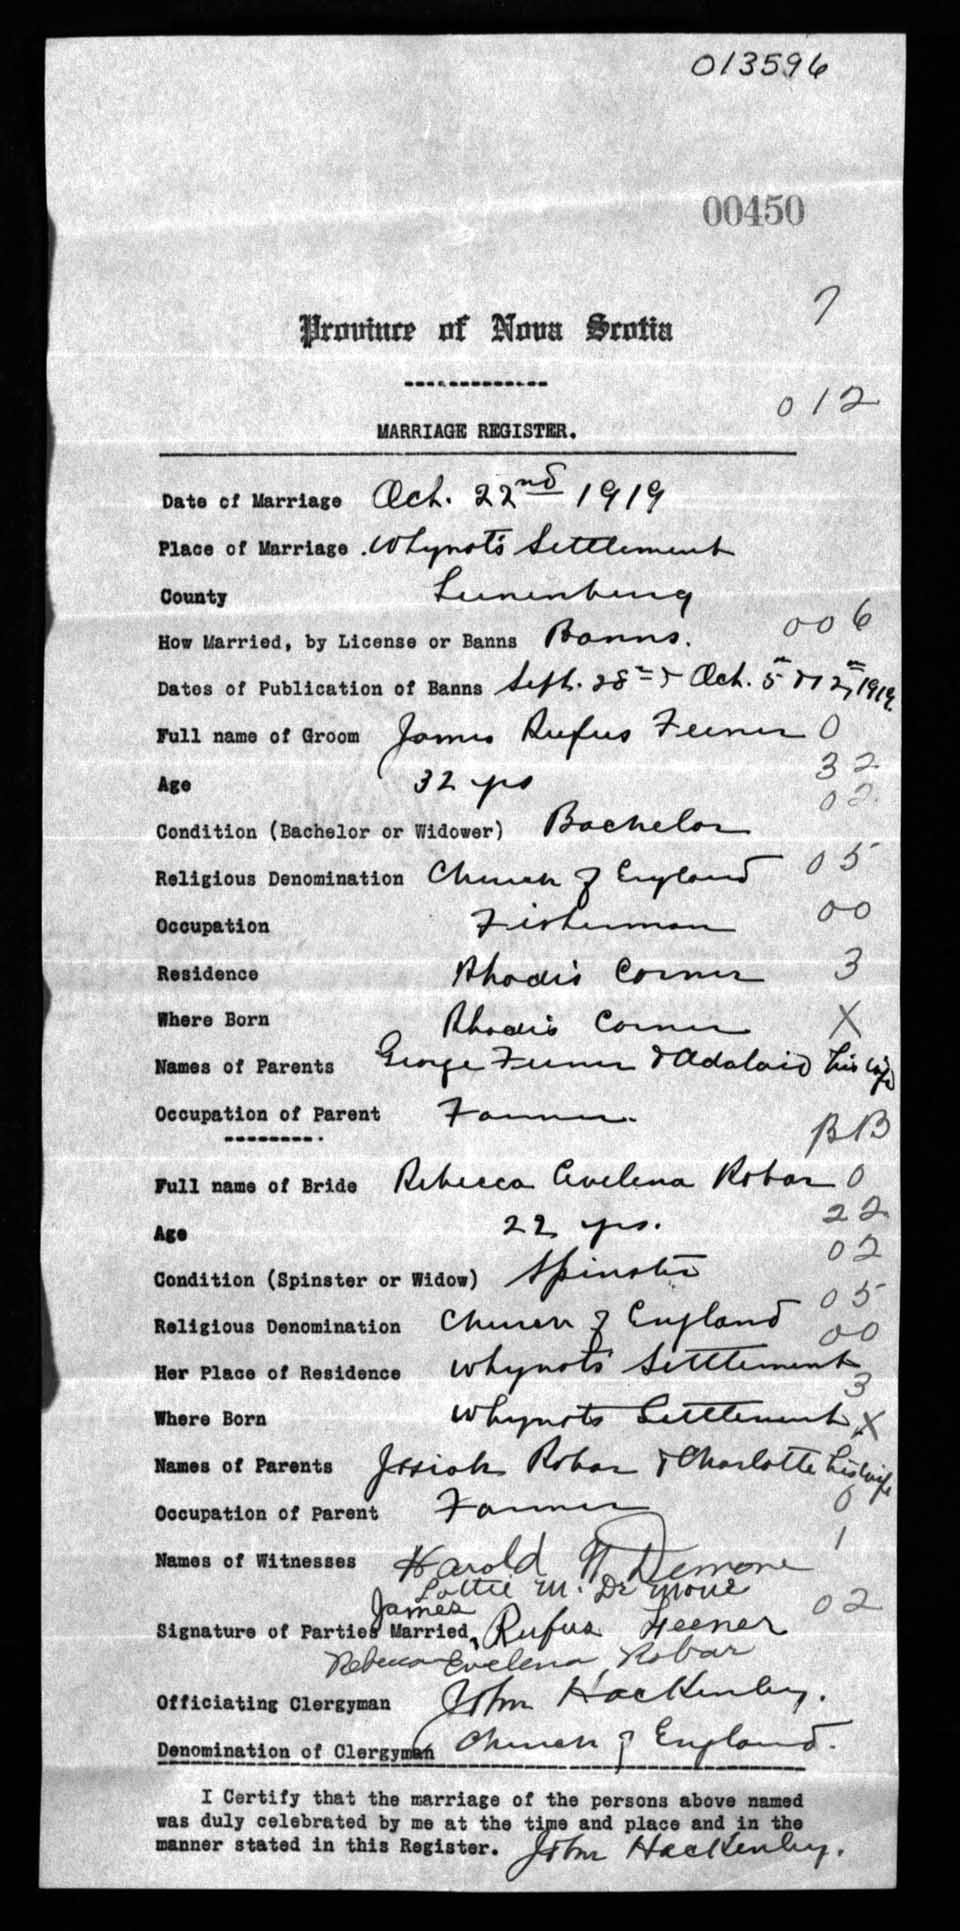 013596
00450
7
Province of Nova Scotia
012
MARRIAGE REGISTER.
Date of Marriage Oct. 22nd 1919
Place of Marriage . Whynot's Settlement
County Lunenburg
How Married, by License or Banns Banns. 006
Dates of Publication of Banns Sept. 28th & Oct. 5th & 12th, 1919.
Full name of Groom James Rufus Feener 0
Age 32 yrs 32
02
Condition (Bachelor or Widower) Bachelor
Religious Denomination Church of England 05
Occupation Fisherman 00
Residence Rhodis Corner 3
Where Born Rhodis Corner X
Names of Parents George Feener & Adalaid his wife
Occupation of Parent Farmer.
BB
Full name of Bride Rebecca Evelena Robar 0
Age 22 yrs. 22
02
Condition (Spinster or Widow) Spinster
Religious Denomination Church of England 05
00
Her Place of Residence Whynots' Settlement
3
Where Born Whynots Settlement X
Names of Parents Josiah Robar & Charlotte his wife
Occupation of Parent Farmer 0
1
Names of Witnesses Harold Demone
Lottie M. DeMone
James
Signature of Parties Married, Rufus Feener 02
Rebecca Evelena Robar
Officiating Clergyman John Hackenley.
Denomination of Clergyman Church of England.
I Certify that the marriage of the persons above named
was duly celebrated by me at the time and place and in the
manner stated in this Register. John Hackenley.